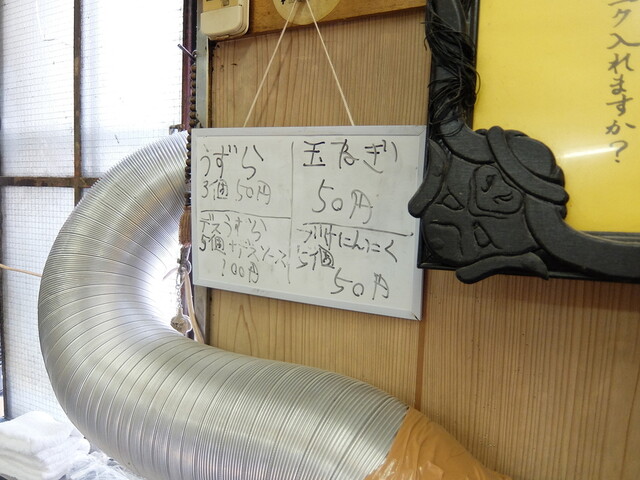 うずら
3個 50円
玉ねぎ
50円
デスうずら
5個+デスソース
100円
揚げにんにく
5個
50円
ク入れますか?